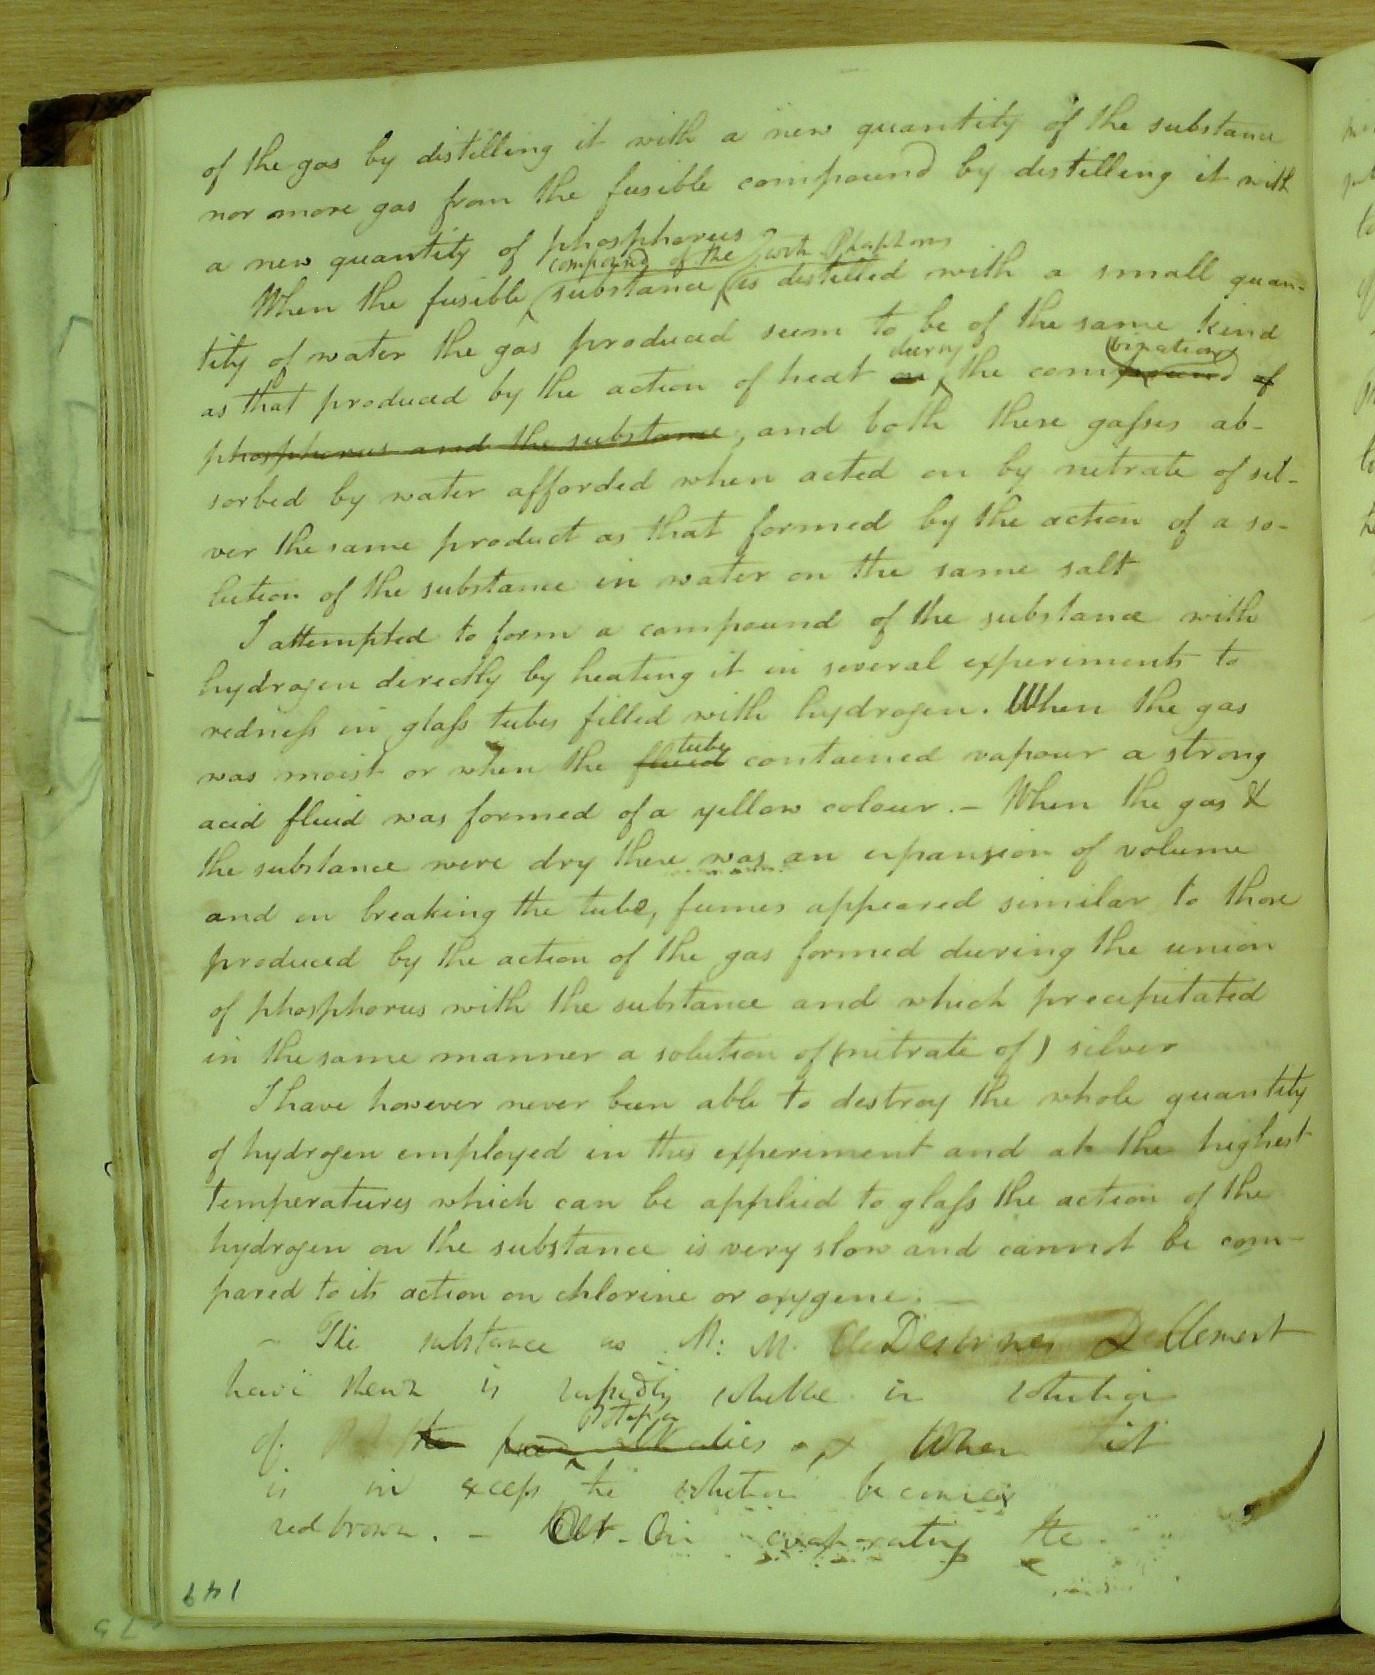 of the gas by distilling it with a new quantity of the substance
nor more gas from the fusible compound by distilling it with
a new quantity of phosphorus
compound of the with Phosphorus
When the fusible substance is distilled with a small quan-
tity of water the gas produced seem to be of the same kind
during bination
as that produced by the action of heat on the compound of
phosphorus and the substance, and both these gasses ab-
sorbed by water afforded when acted on by nitrate of sil-
ver the same product as that formed by the action of a so-
lution of the substance in water on the same salt
I attempted to form a compound of the substance with
hydrogen directly by heating it in several experiments to
redness in glass tubes filled with hydrogen. When the gas
tube
was moist or when the fluid contained vapour a strong
acid fluid was formed of a yellow colour. – When the gas &
the substance were dry there was an expansion of volume
and on breaking the tube, fumes appeared similar to those
produced by the action of the gas formed during the union
of phosphorus with the substance and which precipitated
in the same manner a solution of (nitrate of) silver
I have however never been able to destroy the whole quantity
of hydrogen employed in this experiment and at the highest
temperatures which can be applied to glass the action of the
hydrogen on the substance is very slow and cannot be com-
pared to its action on chlorine or oxygene. –
– The substance as M: M. Desormes & Clement
have shewn is rapidly soluble in solution
Potash
of the fixed alkalies When it
is in excess the solution becomes
red brown. – On evaporating the
149